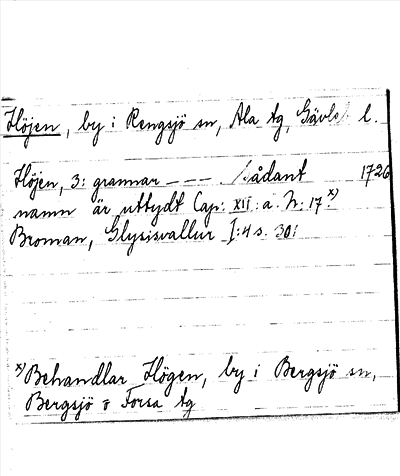 Höjen, by i Rengsjö sn, Ala tg, Gävleb l.
Höjen, 3: grannar - - - Sådant 1726
namn är uttydt Cap: XII: a. N: 17. x)
Broman, Glysisvallur I:4 s. 30:
x) Behandlar Högen, by i Bergsjö sn,
Bergsjö o Forsa tg